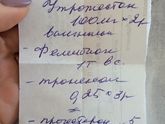 Утрожестан
100мг × 2р
вагинально
- Фемибион
1т в с.
- транексам
0,25 × 3р
- прогестерон 5